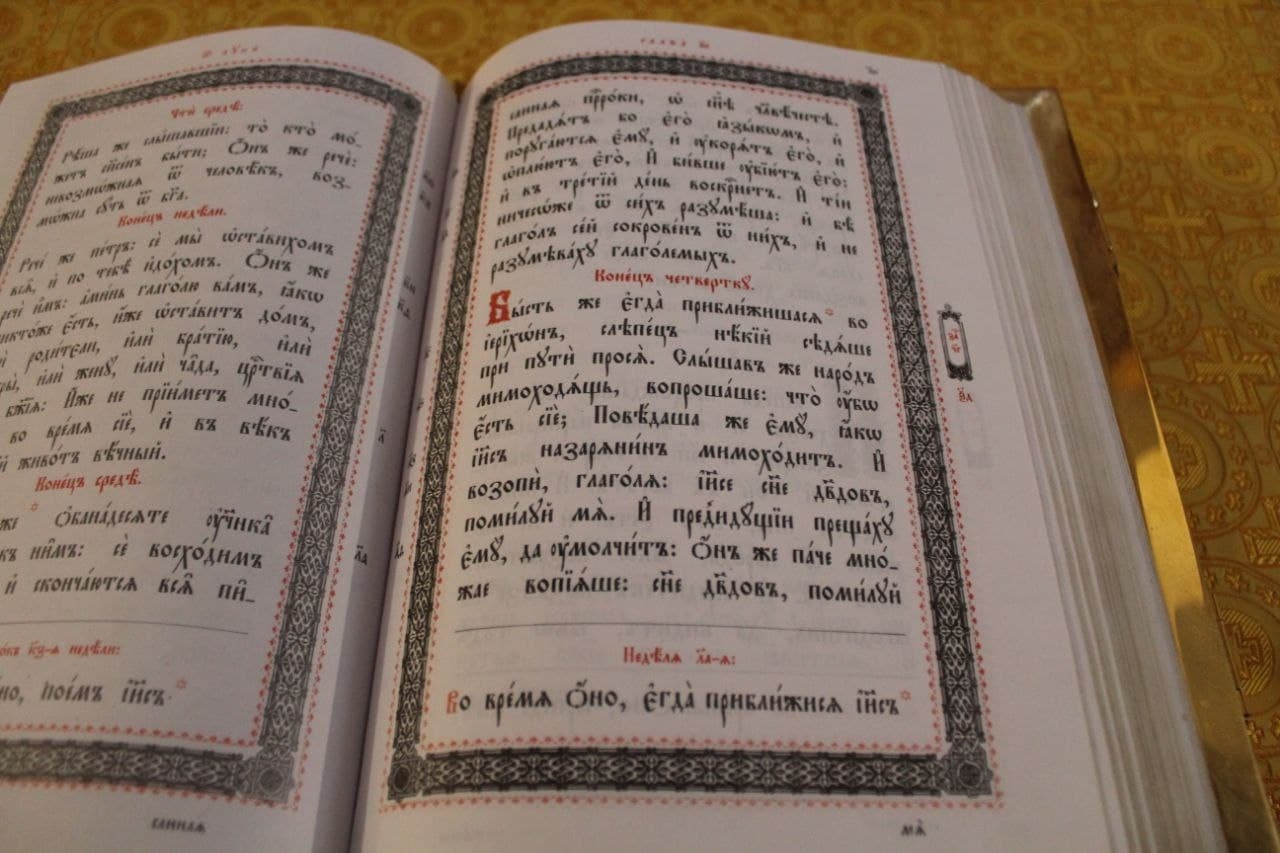 Чтѝ средѣ:
Рѣ́ша же слы́шавшїи: то̀ кто̀ мо́-
жетъ спⷭ҇е́нъ бы́ти; Ѻ҆́нъ же речѐ:
невозмѡ́жнаѧ ѿ человѣ́къ, воз-
мѡ́жна сꙋ́ть ѿ бг҃а.
Коне́цъ недѣ́ли.
Рече́ же пе́тръ: сѐ мы̀ ѡ҆ста́вихомъ
всѧ̑, и҆ по тебѣ̀ и҆до́хомъ. Ѻ҆́нъ же
речѐ и҆̀мъ: а҆ми́нь глаго́лю ва́мъ, ꙗ҆́кѡ
никто́же є҆́сть, и҆́же ѡ҆ста́витъ до́мъ,
и҆лѝ роди́тели, и҆лѝ бра́тїю, и҆лѝ
и҆лѝ женꙋ̀, и҆лѝ ча̑да, црⷭ҇твїѧ
бж҃їѧ: И҆́же не прїи́метъ мно́-
во вре́мѧ сїѐ, и҆ въ вѣ́къ
живо́тъ вѣ́чный.
Коне́цъ средѣ̀.
же ѻ҆бана́десѧте ᲂу҆чн҃ка̑
къ ни̑мъ: сѐ восхо́димъ
и҆ сконча́ютсѧ всѧ̑ пи̑-
к҃ꙁ-ѧ недѣ́ли:
поє́мъ і҆и҃съ *
саннаѧ
Глава̀ и҃і
саннаѧ прⷪ҇рѡ́ки, ѡ҆ сн҃ѣ чл҃вѣ́честѣ.
Предадѧ́тъ бо є҆го̀ ꙗ҆зы́кѡмъ, и҆
порꙋга́ютсѧ є҆мꙋ̀, и҆ ᲂу҆корѧ́тъ є҆го̀, и҆
ѡ҆плюю́тъ є҆го̀, И҆ би́вше ᲂу҆бїю́тъ є҆го̀:
и҆ въ тре́тїй де́нь воскрⷭ҇нетъ. И҆ ті́и
ничесѡ́же ѿ си́хъ разꙋмѣ́ша: и҆ бѣ̀
глаго́лъ се́й сокрове́нъ ѿ ни́хъ, и҆ не
разꙋмѣва́хꙋ глаго́лемыхъ.
Коне́цъ четверткꙋ̀.
Бы́сть же є҆гда̀ прибли́жишасѧ * во
і҆ерїхѡ́нъ, слѣпе́цъ нѣ́кїй сѣдѧ́ше
при пꙋтѝ просѧ̀. Слы́шавъ же наро́дъ
мимоходѧ́щь, вопроша́ше: что̀ ᲂу҆́бѡ
є҆́сть сїѐ; Повѣ́даша же є҆мꙋ̀, ꙗ҆́кѡ
і҆и҃съ назарѧни́нъ мимохо́дитъ. И҆
возопѝ, глаго́лѧ: і҆и҃се сн҃е дв҃довъ,
поми́лꙋй мѧ̀. И҆ пред̾идꙋ́щїи преща́хꙋ
є҆мꙋ̀, да ᲂу҆молчи́тъ: Ѻ҆́нъ же па́че мно́-
жае вопїѧ́ше: сн҃е дв҃довъ, поми́лꙋй
за҃
Недѣ́лѧ л҃а-ѧ:
Во вре́мѧ ѻ҆́но, є҆гда̀ прибли́жисѧ і҆и҃съ *
мѧ̀